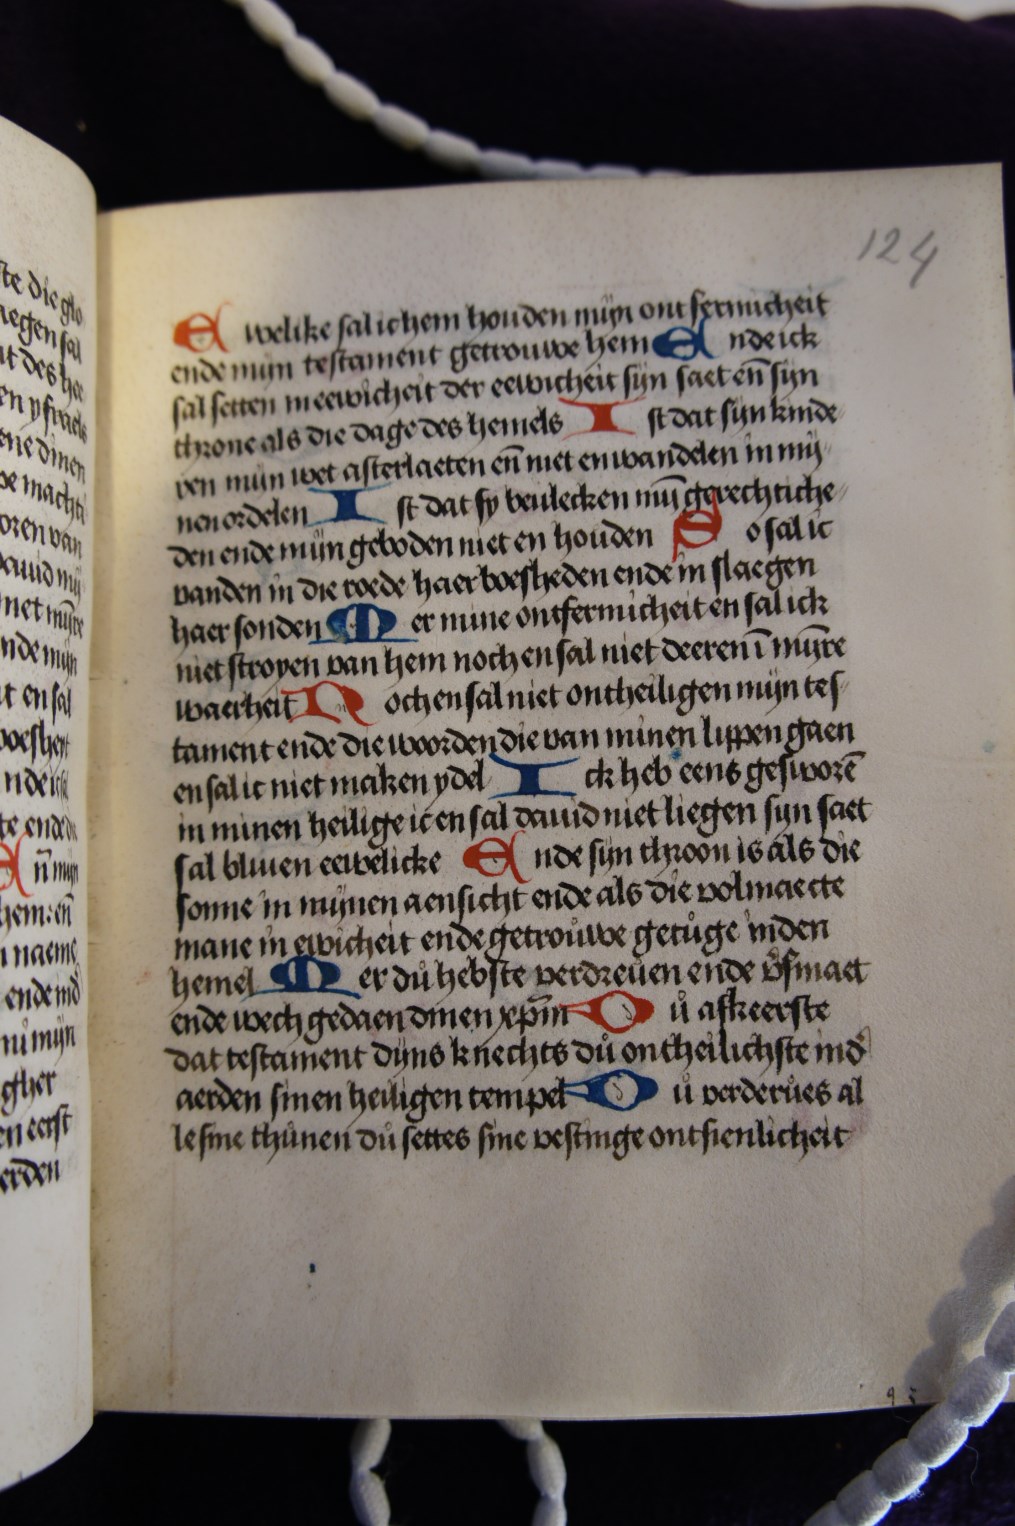 124
Ewelike sal ic hem houden mijn ontfermicheit
ende mijn testament getrouwe hem Ende ick
sal setten in eewicheit der eewicheit sijn saet en̄ sijn
throne als die dage des hemels Ist dat sijn kinde
ren mijn wet afterlaeten en̄ niet en wandelen in mij
nen ordelen Ist dat sy bevlecken mij̄ gerechtiche
den ende mijn geboden niet en houden So sal ic
vanden in die roede haer boesheden ende in slaegen
haer sonden Mer mine ontfermicheit en sal ick
niet stroyen van hem noch en sal niet deeren ī mijr̄e
waerheit Noch en sal niet ontheiligen mijn tes
tament ende die woorden die van minen lippen gaen
en sal ic niet maken ydel Ick heb eens geswore̅
in minen heilige ic en sal dauid niet liegen sijn saet
sal bliuen eewelicke Ende sijn throon is als die
sonne in mijnen aensicht ende als die volmaecte
mane in ewicheit ende getrouwe getuge inden
hemel Mer du hebste verdreuen ende v̄smaet
ende wech gedaen dinen xp̄m Du afkeerste
dat testament dijns knechts du ontheilichste ind̄
aerden sinen heiligen tempel Du verderues al
le sine thunen du settes sine vestinge ontsienlicheit